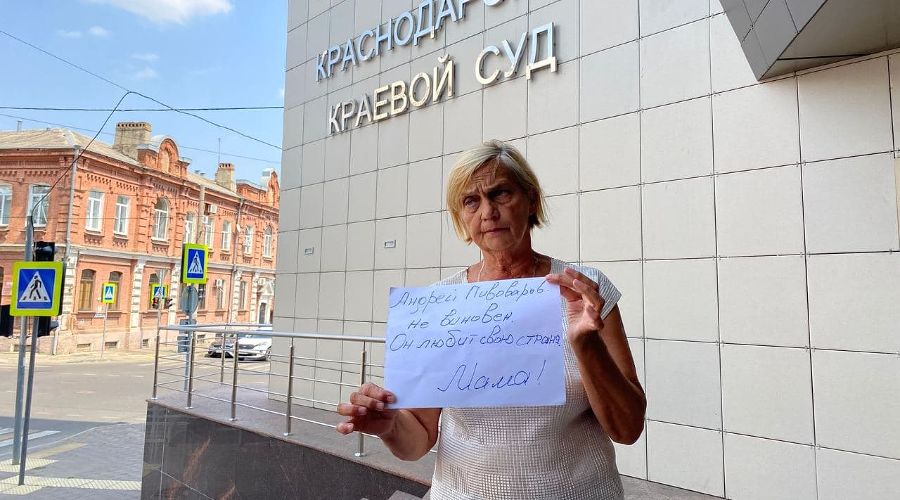 КРАСНОДАРС
КРАЕВОЙ СУД
Андрей Пивоваров
не виновен.
Он любит свою страну
Мама!